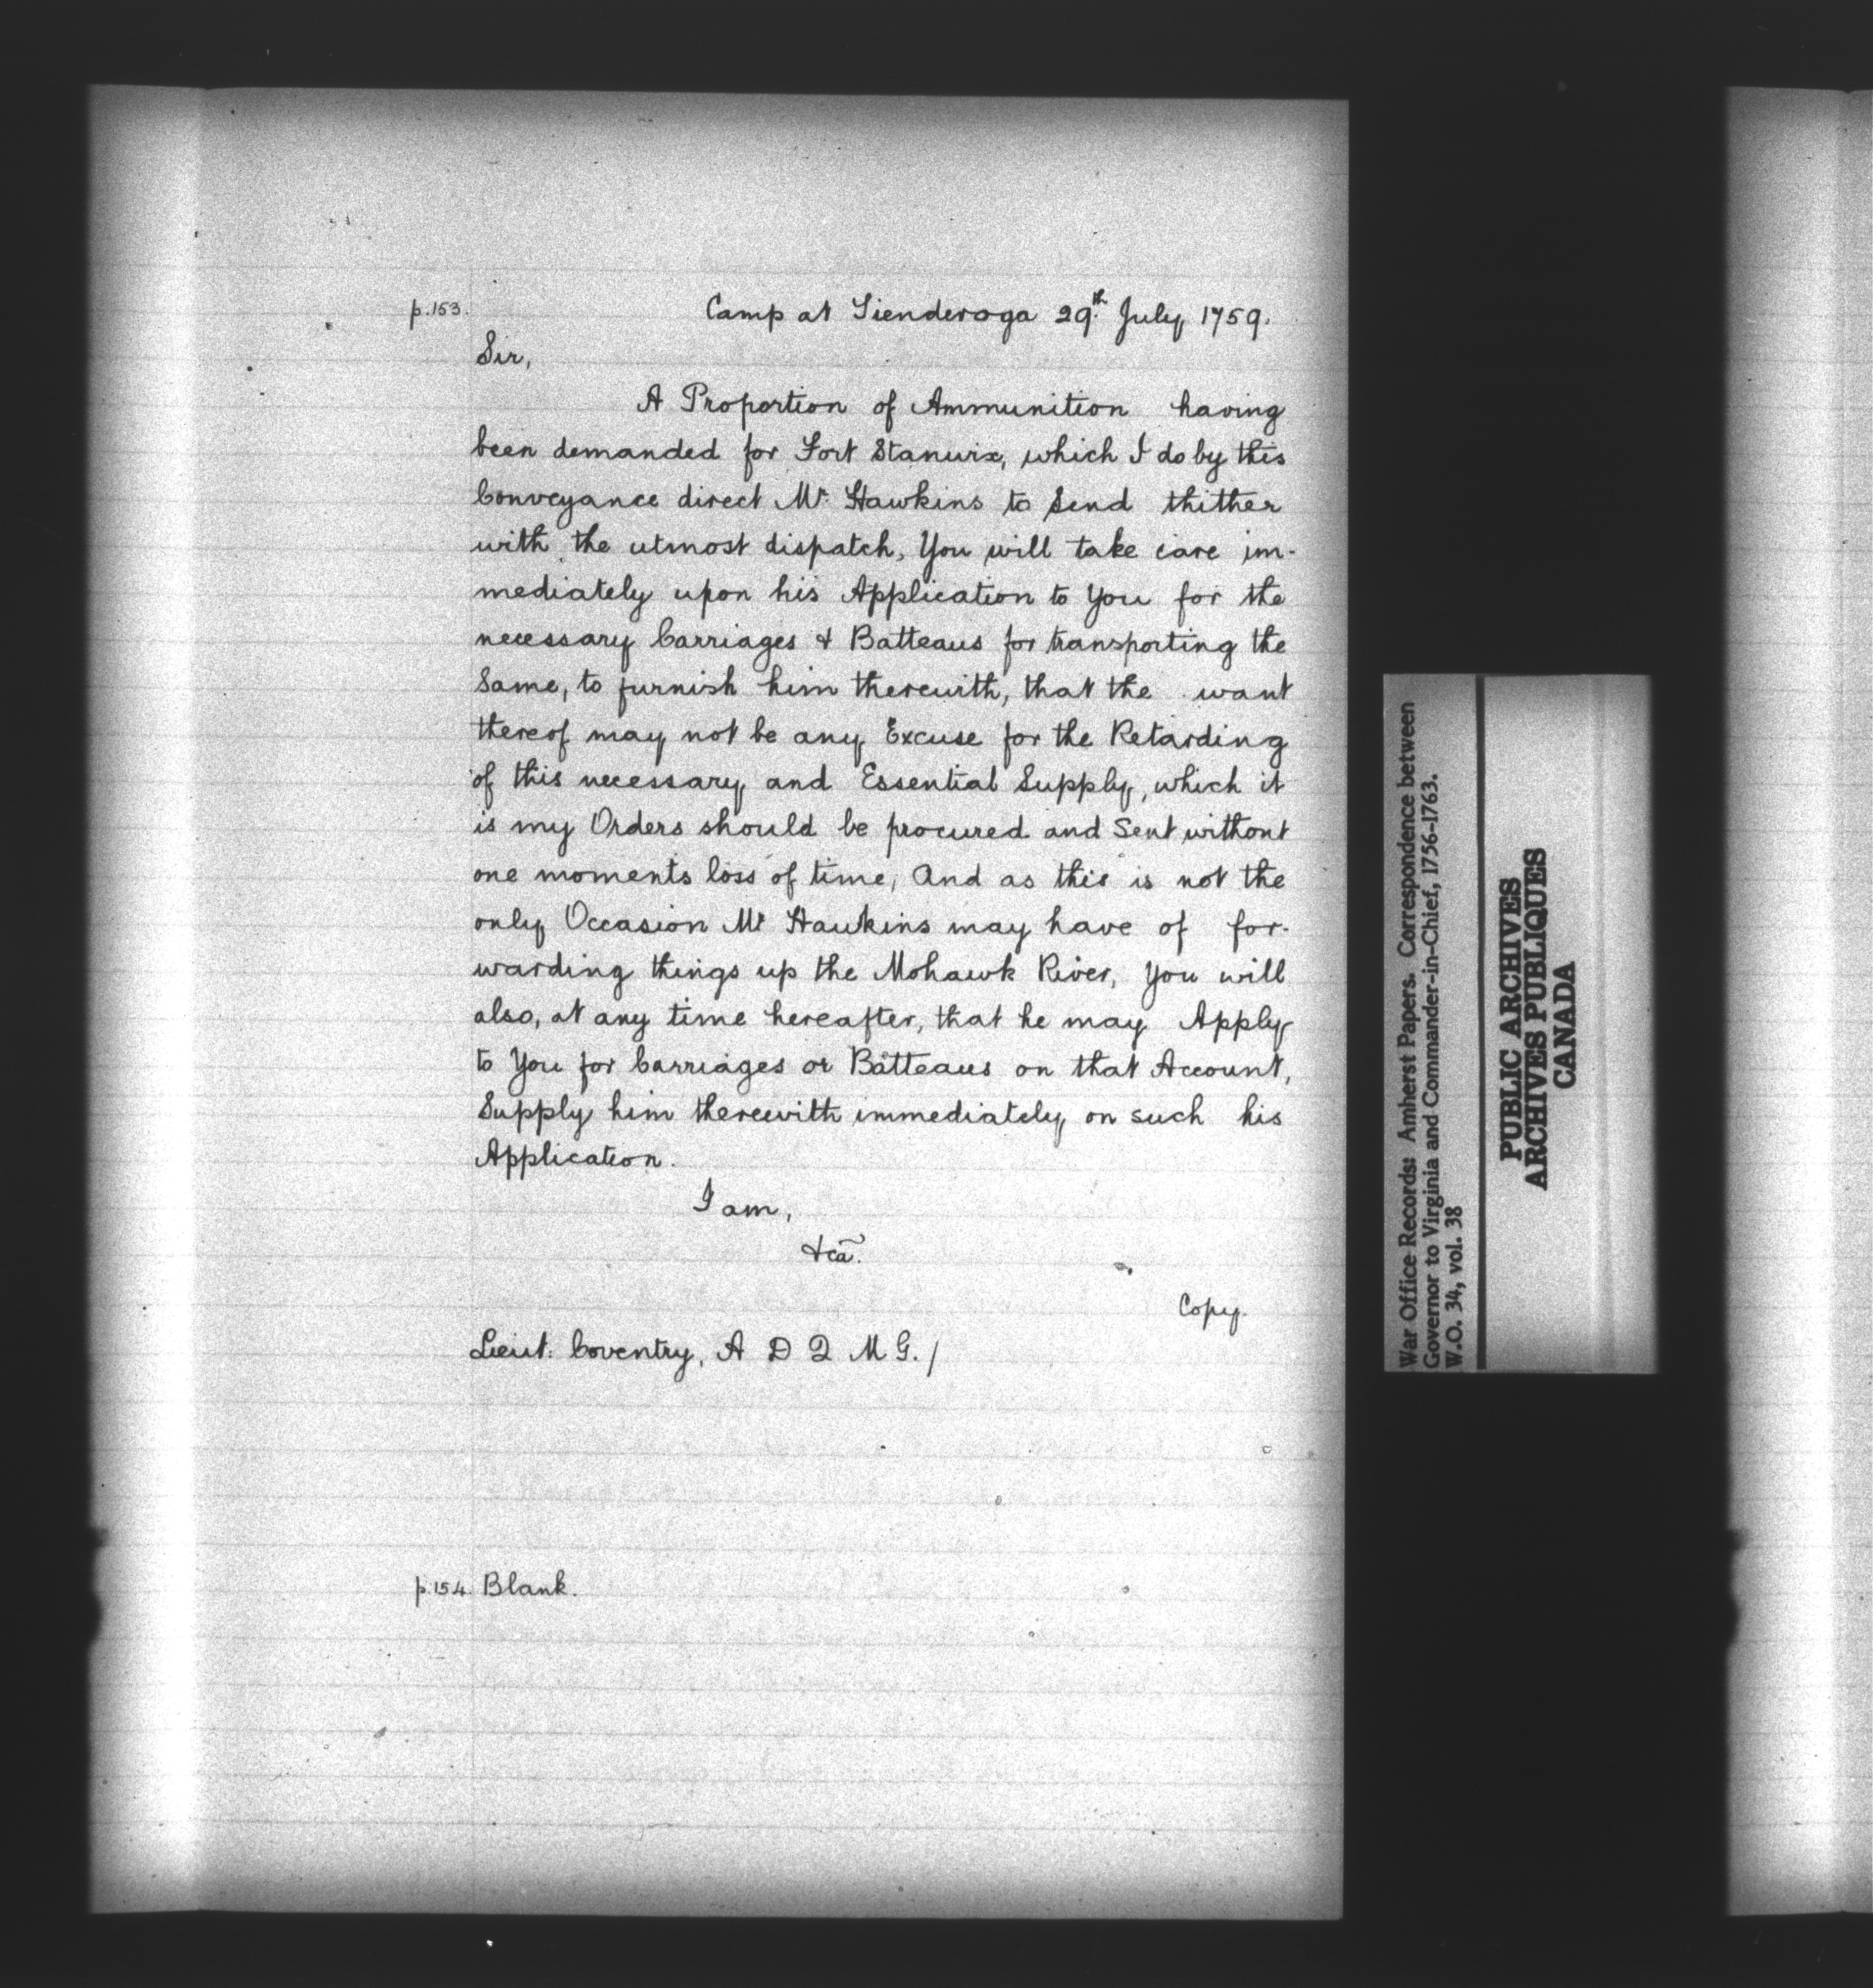 p.153.
Camp at Tienderoga 29th July 1759.
Sir,
A Proportion of Ammunition having
been demanded for Fort Stanwix, which I do by this
Conveyance direct Mr. Hawkins to Send thither
with the utmost dispatch, You will take care im-
mediately upon his Application to You for the
necessary Carriages & Batteaus for transporting the
Same, to furnish him therewith, that the want
thereof may not be any Excuse for the Retarding
of this necessary and Essential Supply, which it
is my Orders should be procured and Sent without
one moments loss of time, And as this is not the
only Occasion Mr Hawkins may have of for-
warding things up the Mohawk River, You will
also, at any time hereafter, that he may Apply
to You for Carriages or Batteaus on that Account,
Supply him therewith immediately on such his
Application.
I am,
&ca.
Copy.
Lieut. Coventry, A D Q M G./
p.154. Blank.
War Office Records: Amherst Papers. Correspondence between
Governor to Virginia and Commander-in-Chief, 1756-1763.
W.O. 34, vol. 38
PUBLIC ARCHIVES
ARCHIVES PUBLIQUES
CANADA